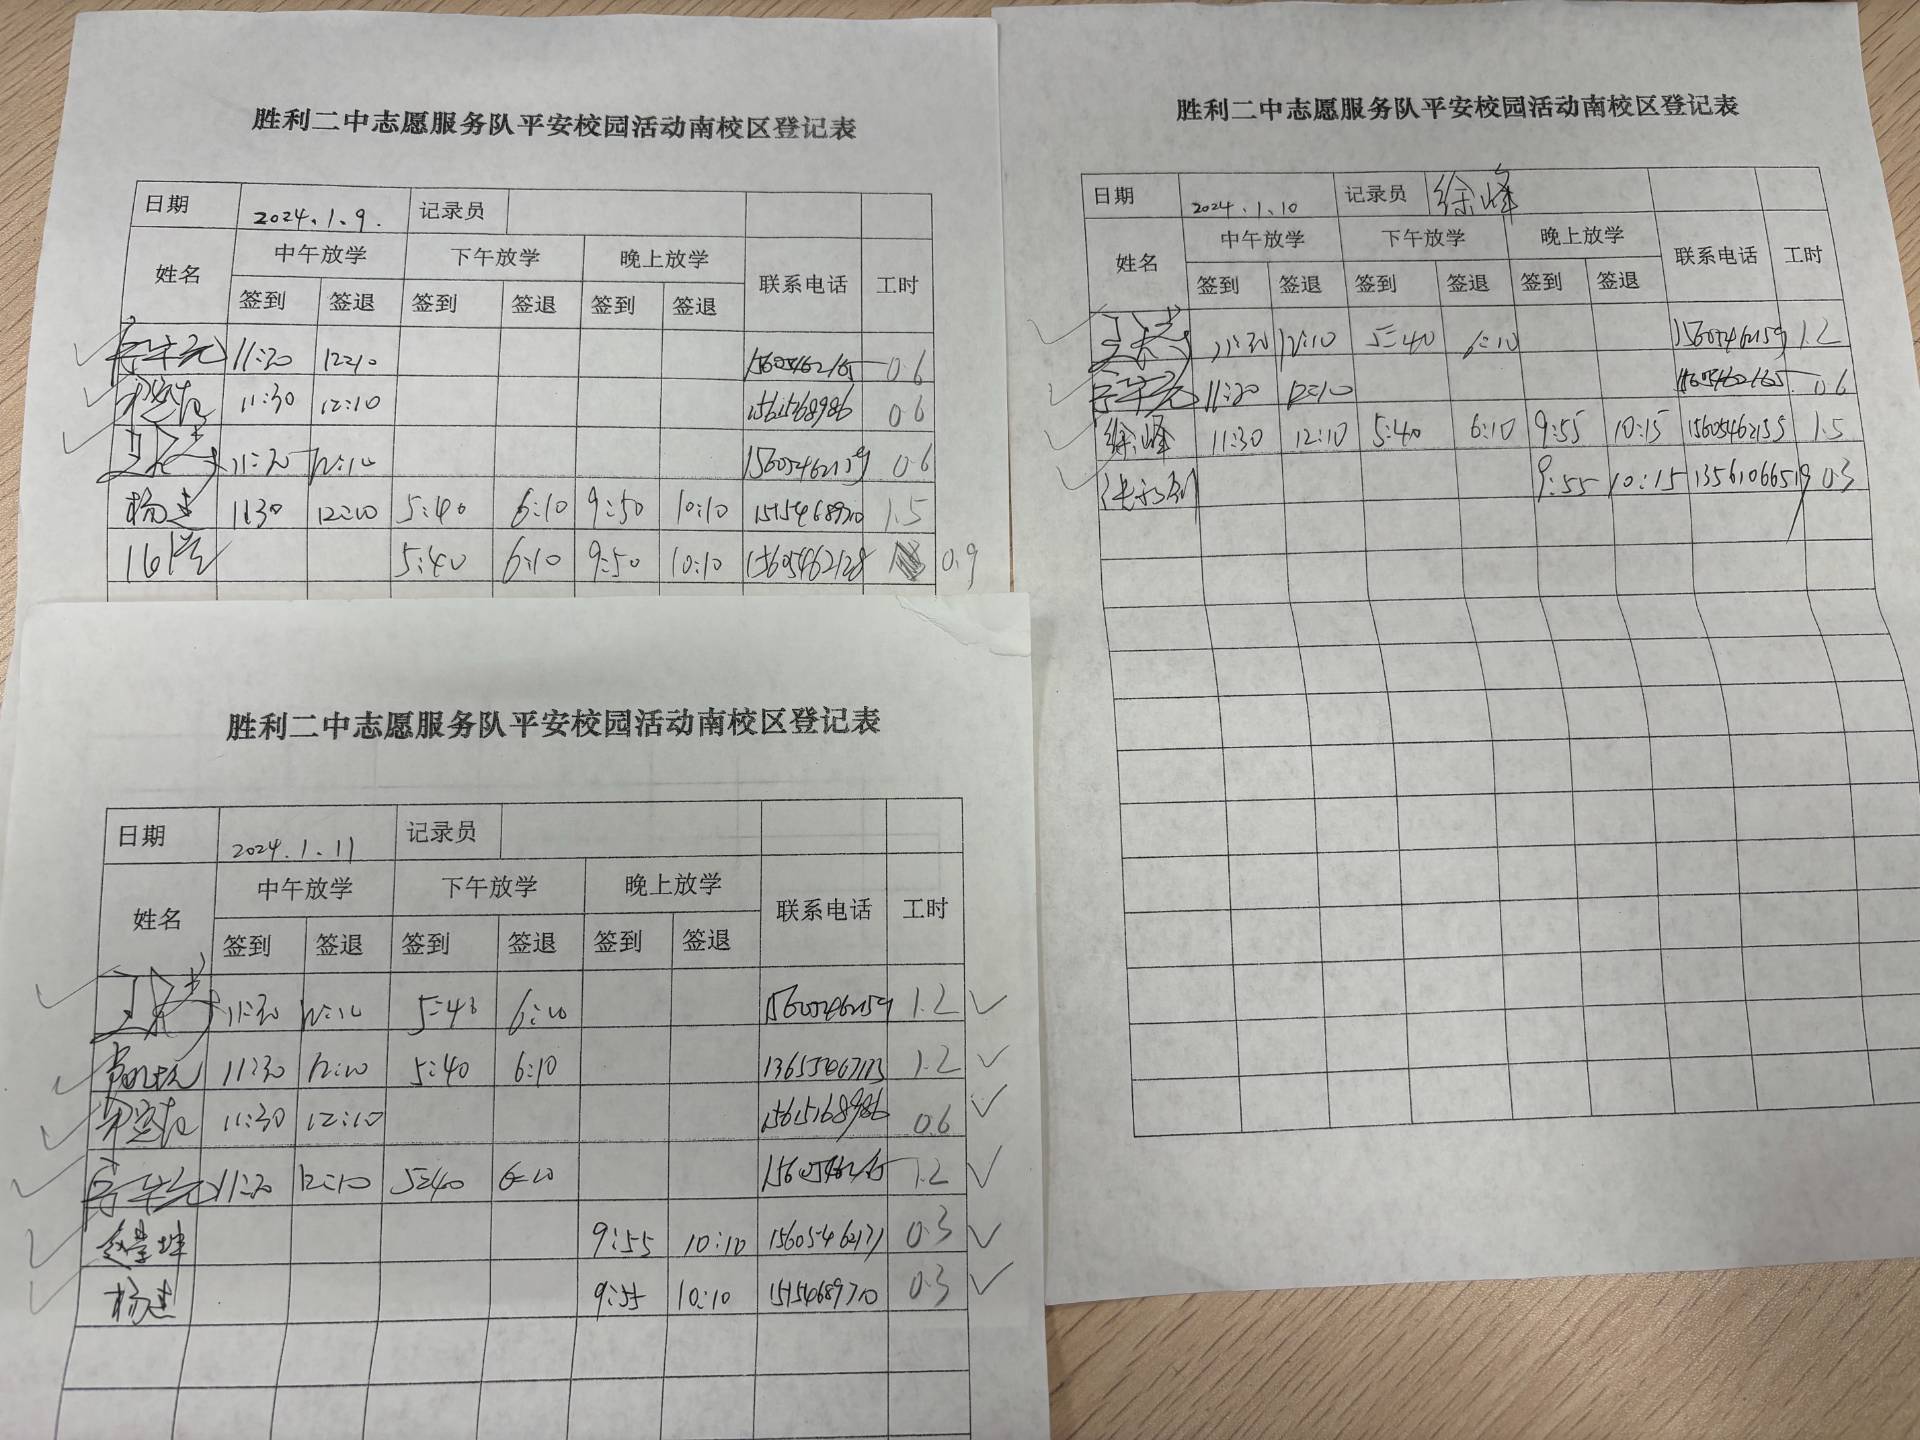 胜利二中志愿服务队平安校园活动南校区登记表
日期 2024.1.9. 记录员
姓名 中午放学 下午放学 晚上放学 联系电话 工时
签到 签退 签到 签退 签到 签退
11:30 12:10 0.6
11:30 12:10 15615168986 0.6
11:30 12:10 15605462159 0.6
杨建 11:30 12:10 5:40 6:10 9:50 10:10 15154689710 1.5
5:40 6:10 9:50 10:10 15605462128 0.9
胜利二中志愿服务队平安校园活动南校区登记表
日期 2024.1.10 记录员 徐峰
姓名 中午放学 下午放学 晚上放学 联系电话 工时
签到 签退 签到 签退 签到 签退
11:30 12:10 5:40 6:10 15605462159 1.2
11:30 12:10 0.6
徐峰 11:30 12:10 5:40 6:10 9:55 10:15 15605462155 1.5
9:55 10:15 13561066519 0.3
胜利二中志愿服务队平安校园活动南校区登记表
日期 2024.1.11 记录员
姓名 中午放学 下午放学 晚上放学 联系电话 工时
签到 签退 签到 签退 签到 签退
11:30 12:10 5:40 6:10 15605462159 1.2
11:30 12:10 5:40 6:10 1.2
11:30 12:10 15615168986 0.6
11:30 12:10 5:40 6:10 1.2
9:55 10:10 15605462171 0.3
杨建 9:55 10:10 15154689710 0.3